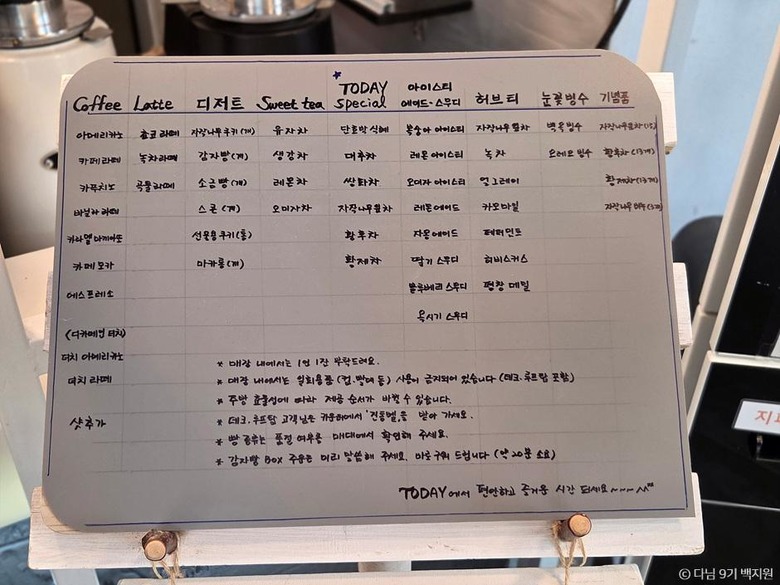 Coffee Latte 디저트 Sweet tea TODAY Special 아이스티 에이드·스무디 허브티 눈꽃빙수 기념품
아메리카노 초코라떼 자작나무쿠키(개) 유자차 단호박식혜 복숭아 아이스티 자작나무잎차 백옥 빙수
카페라떼 녹차라떼 감자빵(개) 생강차 대추차 레몬 아이스티 녹차 오레오 빙수 황후차(13개)
카푸치노 곡물라떼 소금빵(개) 레몬차 쌍화차 오미자 아이스티 얼그레이 황제차(13개)
바닐라 라떼 스콘(개) 오미자차 자작나무잎차 레몬에이드 카모마일
카라멜 마끼아또 선물용쿠키(통) 황후차 자몽에이드 페퍼민트
카페모카 마카롱(개) 황제차 딸기 스무디 히비스커스
에스프레소 블루베리 스무디 평창 메밀
옥시기 스무디
(디카페인 더치)
더치 아메리카노
더치 라떼
샷추가
* 매장 내에서는 1인 1잔 부탁드려요.
* 매장 내에서는 일회용품(컵, 빨대 등) 사용이 금지되어 있습니다 (데크, 루프탑 포함)
* 주방 효율성에 따라 제공 순서가 바뀔 수 있습니다.
* 데크, 루프탑 고객님은 카운터에서 '진동벨'을 받아 가세요.
* 빵 종류는 품절 여부를 매대에서 확인해 주세요.
* 감자빵 Box 주문은 미리 말씀해 주세요. 바로 구워 드립니다 (약 20분 소요)
TODAY에서 편안하고 즐거운 시간 되세요~~~^^
지
© 다님 9기 백지원